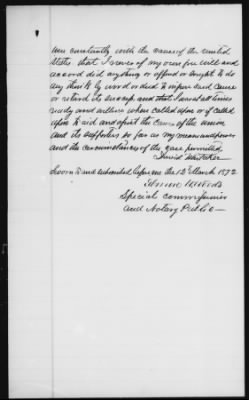 was constantly with the cause of the United
States that I never of my own free will and
accord did anything or offered or sought to do
anything by word or deed to injure said cause
or retard its success and that I was at all times
ready and willing when called upon or if called
upon to aid and assist the cause of the union
and its supporters so far as my means and power
and the circumstances of the case permitted
David
Sworn to and subscribed before me the 12th March 1872
Special commissioner
and Notary Public